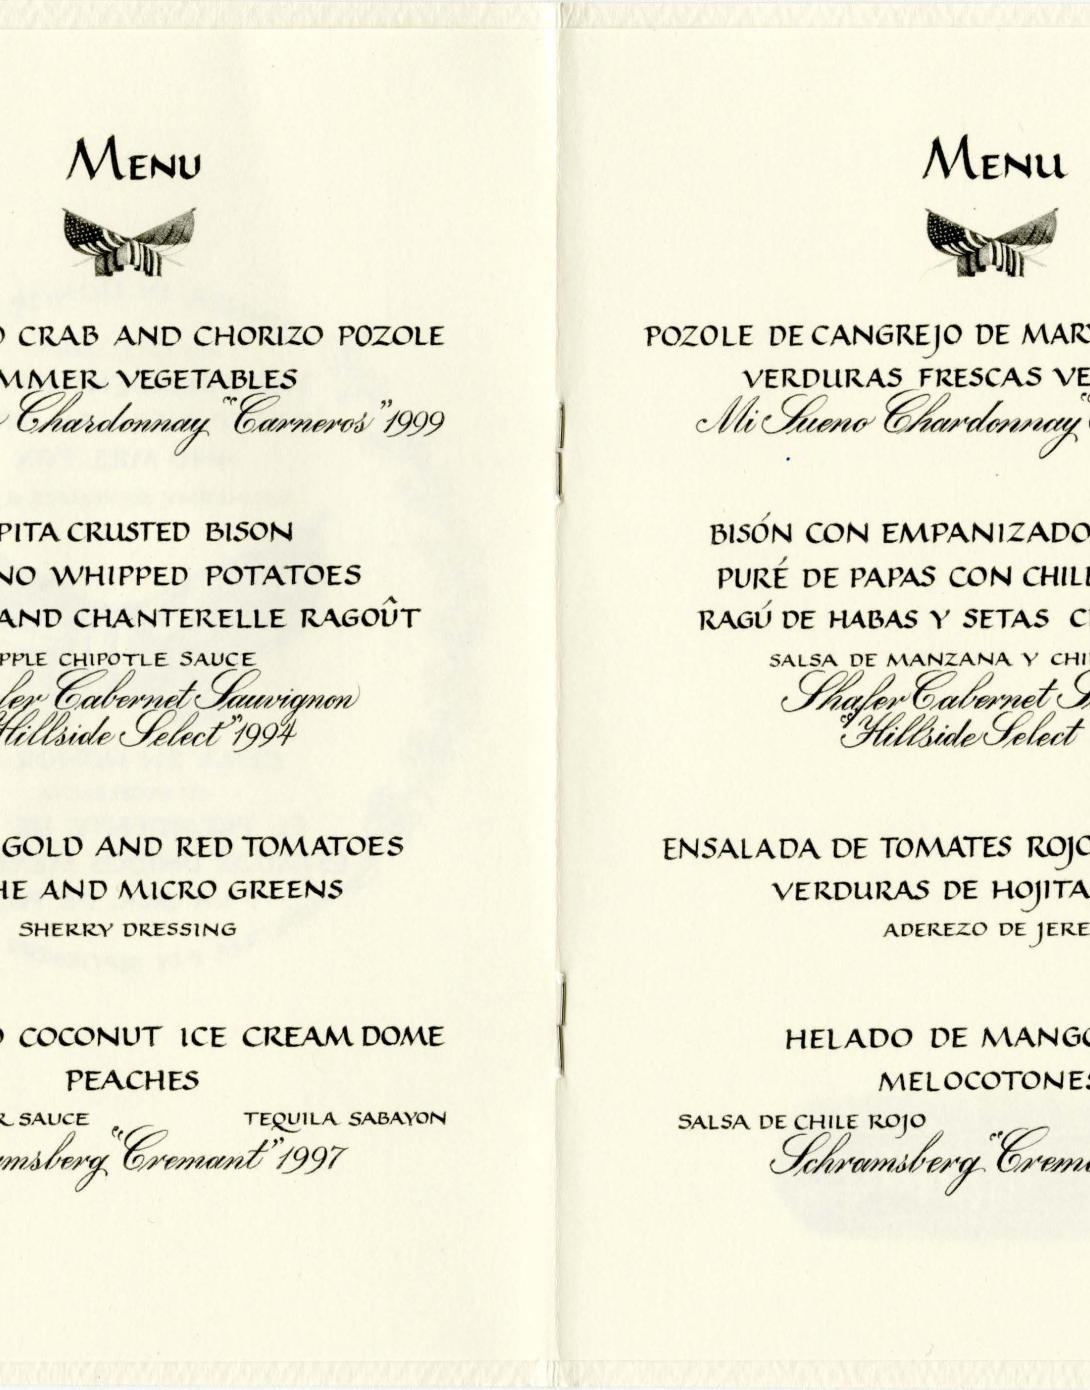 MENU
CRAB AND CHORIZO POZOLE
VEGETABLES
Chardonnay "Carneros" 1999
CRUSTED BISON
WHIPPED POTATOES
AND CHANTERELLE RAGOÛT
CHIPOTLE SAUCE
Cabernet Sauvignon
"Hillside Select" 1994
GOLD AND RED TOMATOES
AND MICRO GREENS
SHERRY DRESSING
COCONUT ICE CREAM DOME
PEACHES
SAUCE TEQUILA SABAYON
"Cremant" 1997
MENU
POZOLE DE CANGREJO DE
VERDURAS FRESCAS
Mi Sueno Chardonnay
BISÓN CON EMPANIZADO
PURÉ DE PAPAS CON
RAGÚ DE HABAS Y SETAS
SALSA DE MANZANA Y
Shafer Cabernet
"Hillside Select
ENSALADA DE TOMATES
VERDURAS DE
ADEREZO DE
HELADO DE
MELOCOTONES
SALSA DE CHILE ROJO
Schramsberg